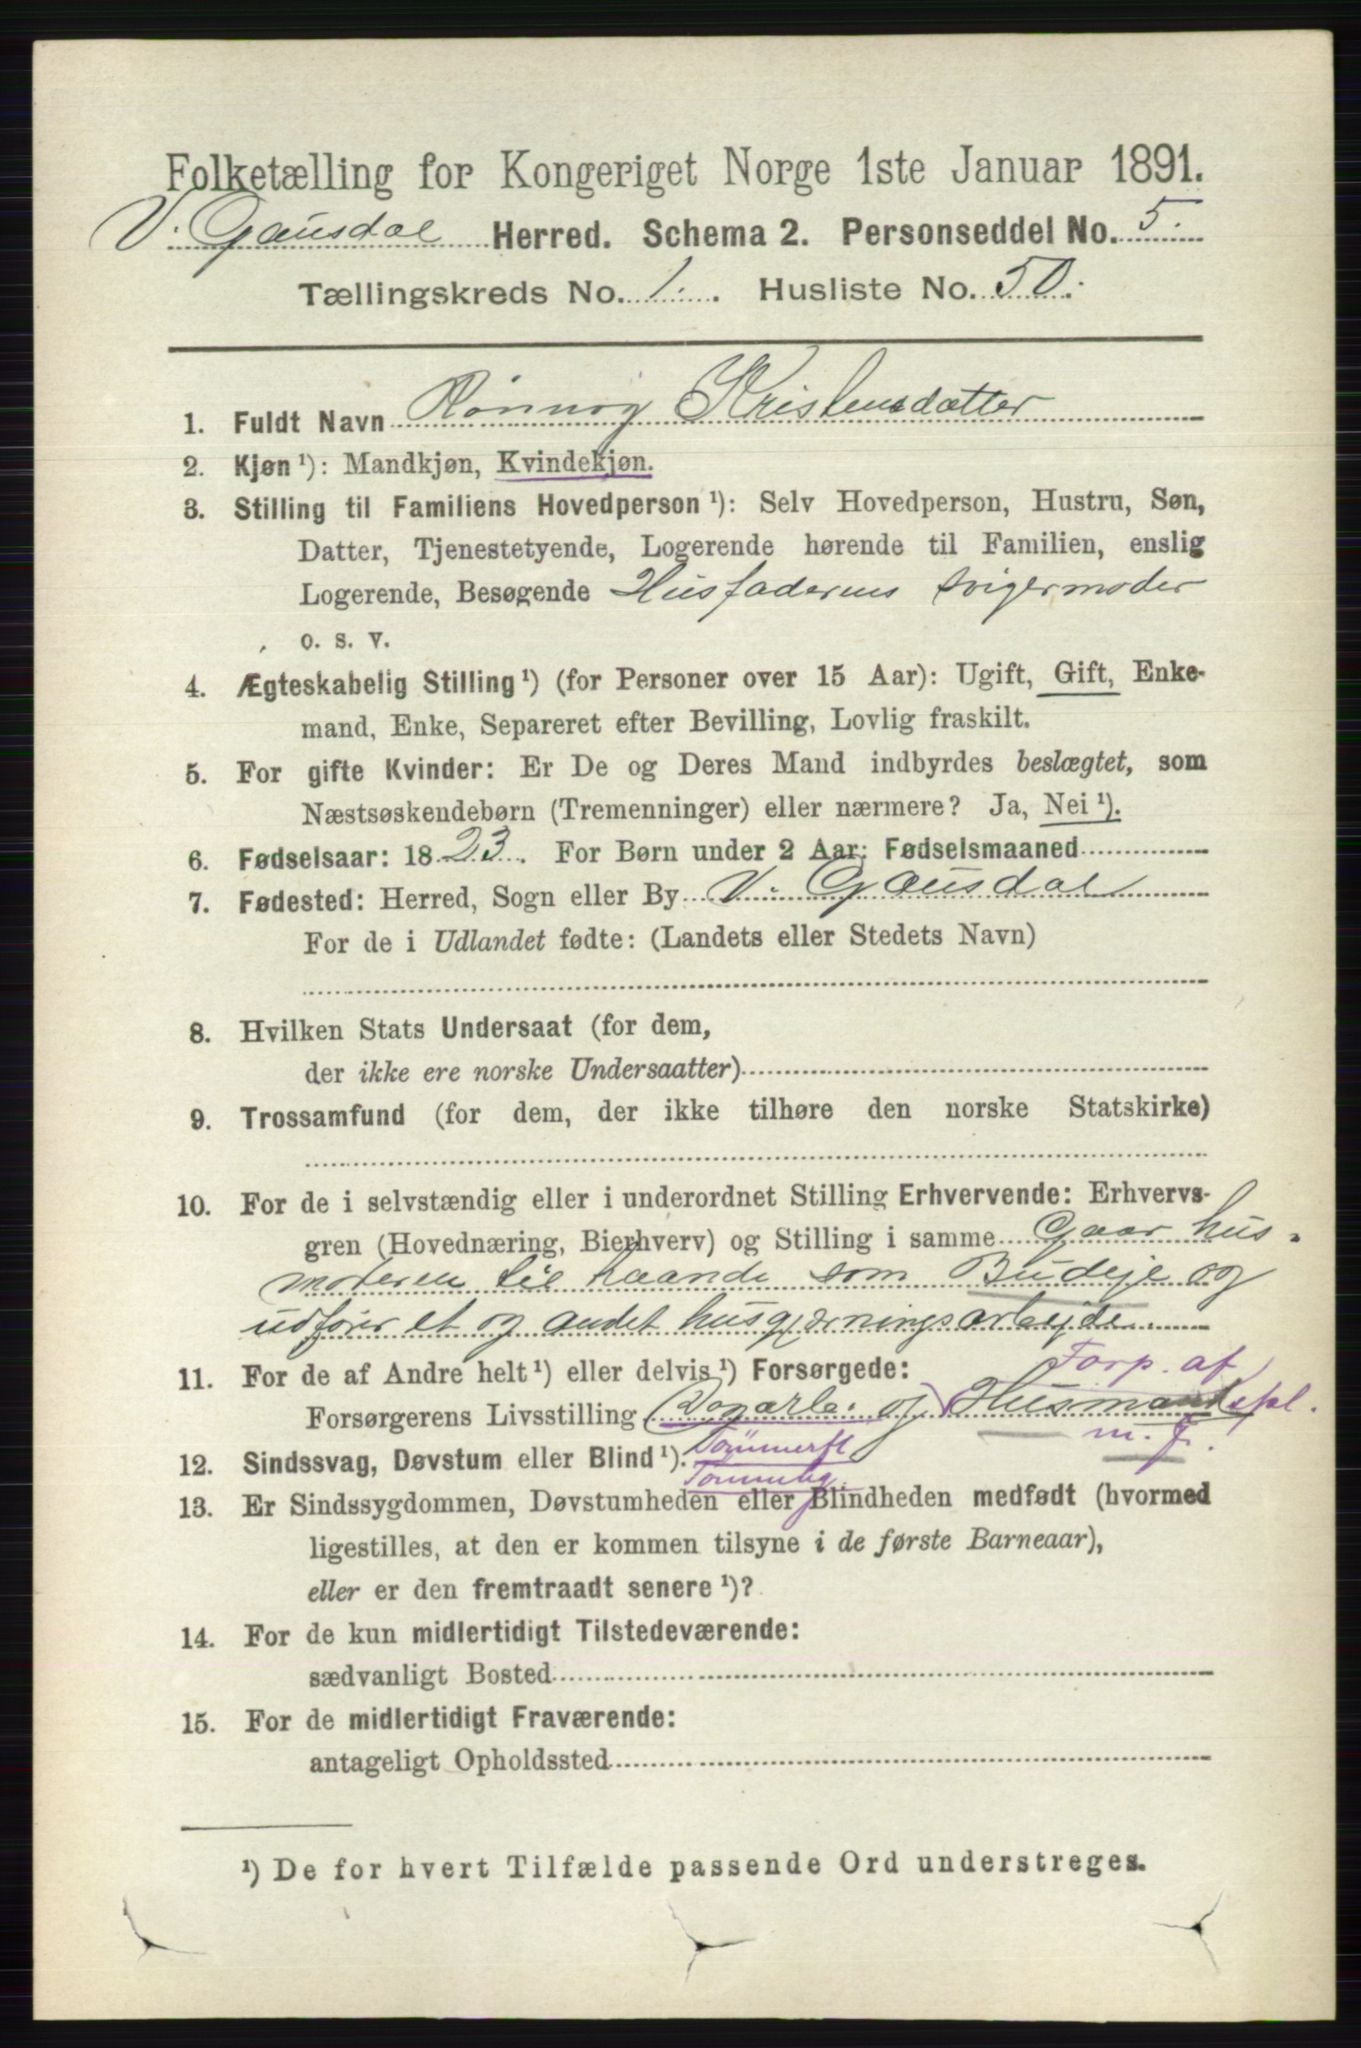 Folketælling for Kongeriget Norge 1ste Januar 1891.
V. Gausdal Herred. Schema 2. Personseddel No. 5.
Tællingskreds No. 1. Husliste No. 50.
1. Fuldt Navn Rønnog Kristensdatter
2. Kjøn ¹): Mandkjøn, Kvindekjøn.
3. Stilling til Familiens Hovedperson ¹): Selv Hovedperson, Hustru, Søn,
Datter, Tjenestetyende, Logerende hørende til Familien, enslig
Logerende, Besøgende Husfaderens svigermoder
o. s. v.
4. Ægteskabelig Stilling ¹) (for Personer over 15 Aar): Ugift, Gift, Enke-
mand, Enke, Separeret efter Bevilling, Lovlig fraskilt.
5. For gifte Kvinder: Er De og Deres Mand indbyrdes beslægtet, som
Næstsøskendebørn (Tremenninger) eller nærmere? Ja, Nei ¹).
6. Fødselsaar: 1823. For Børn under 2 Aar: Fødselsmaaned
7. Fødested: Herred, Sogn eller By V. Gausdal
For de i Udlandet fødte: (Landets eller Stedets Navn)
8. Hvilken Stats Undersaat (for dem,
der ikke ere norske Undersaatter)
9. Trossamfund (for dem, der ikke tilhøre den norske Statskirke)
10. For de i selvstændig eller i underordnet Stilling Erhvervende: Erhvervs-
gren (Hovednæring, Bierhverv) og Stilling i samme Gaar hus-
moderen til haande som Budeje og
udfører et og andet husgjerningsarbejde.
11. For de af Andre helt ¹) eller delvis ¹) Forsørgede: Forp. af
Forsørgerens Livsstilling (Dagarb. og) Husmandspl.
m. J.
12. Sindssvag, Døvstum eller Blind ¹). Tømmerfl
13. Er Sindssygdommen, Døvstumheden eller Blindheden medfødt (hvormed
ligestilles, at den er kommen tilsyne i de første Barneaar),
eller er den fremtraadt senere ¹)?
14. For de kun midlertidigt Tilstedeværende:
sædvanligt Bosted
15. For de midlertidigt Fraværende:
antageligt Opholdssted
¹) De for hvert Tilfælde passende Ord understreges.